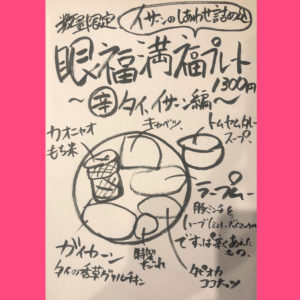 数量限定
イサーンのしあわせ詰め込
眼福満福プレート
1300円
〜辛タイ、イサーン編〜
カオニャオ
もち米
キャベツ
トムヤムカレー
スープ、
ラープムー
豚ミンチを
です、ぱぱ辛くあえた
もの、
ガイヤーン
タイの香草グリルチキン
特製
だれ
タピオカ
ココナッツ